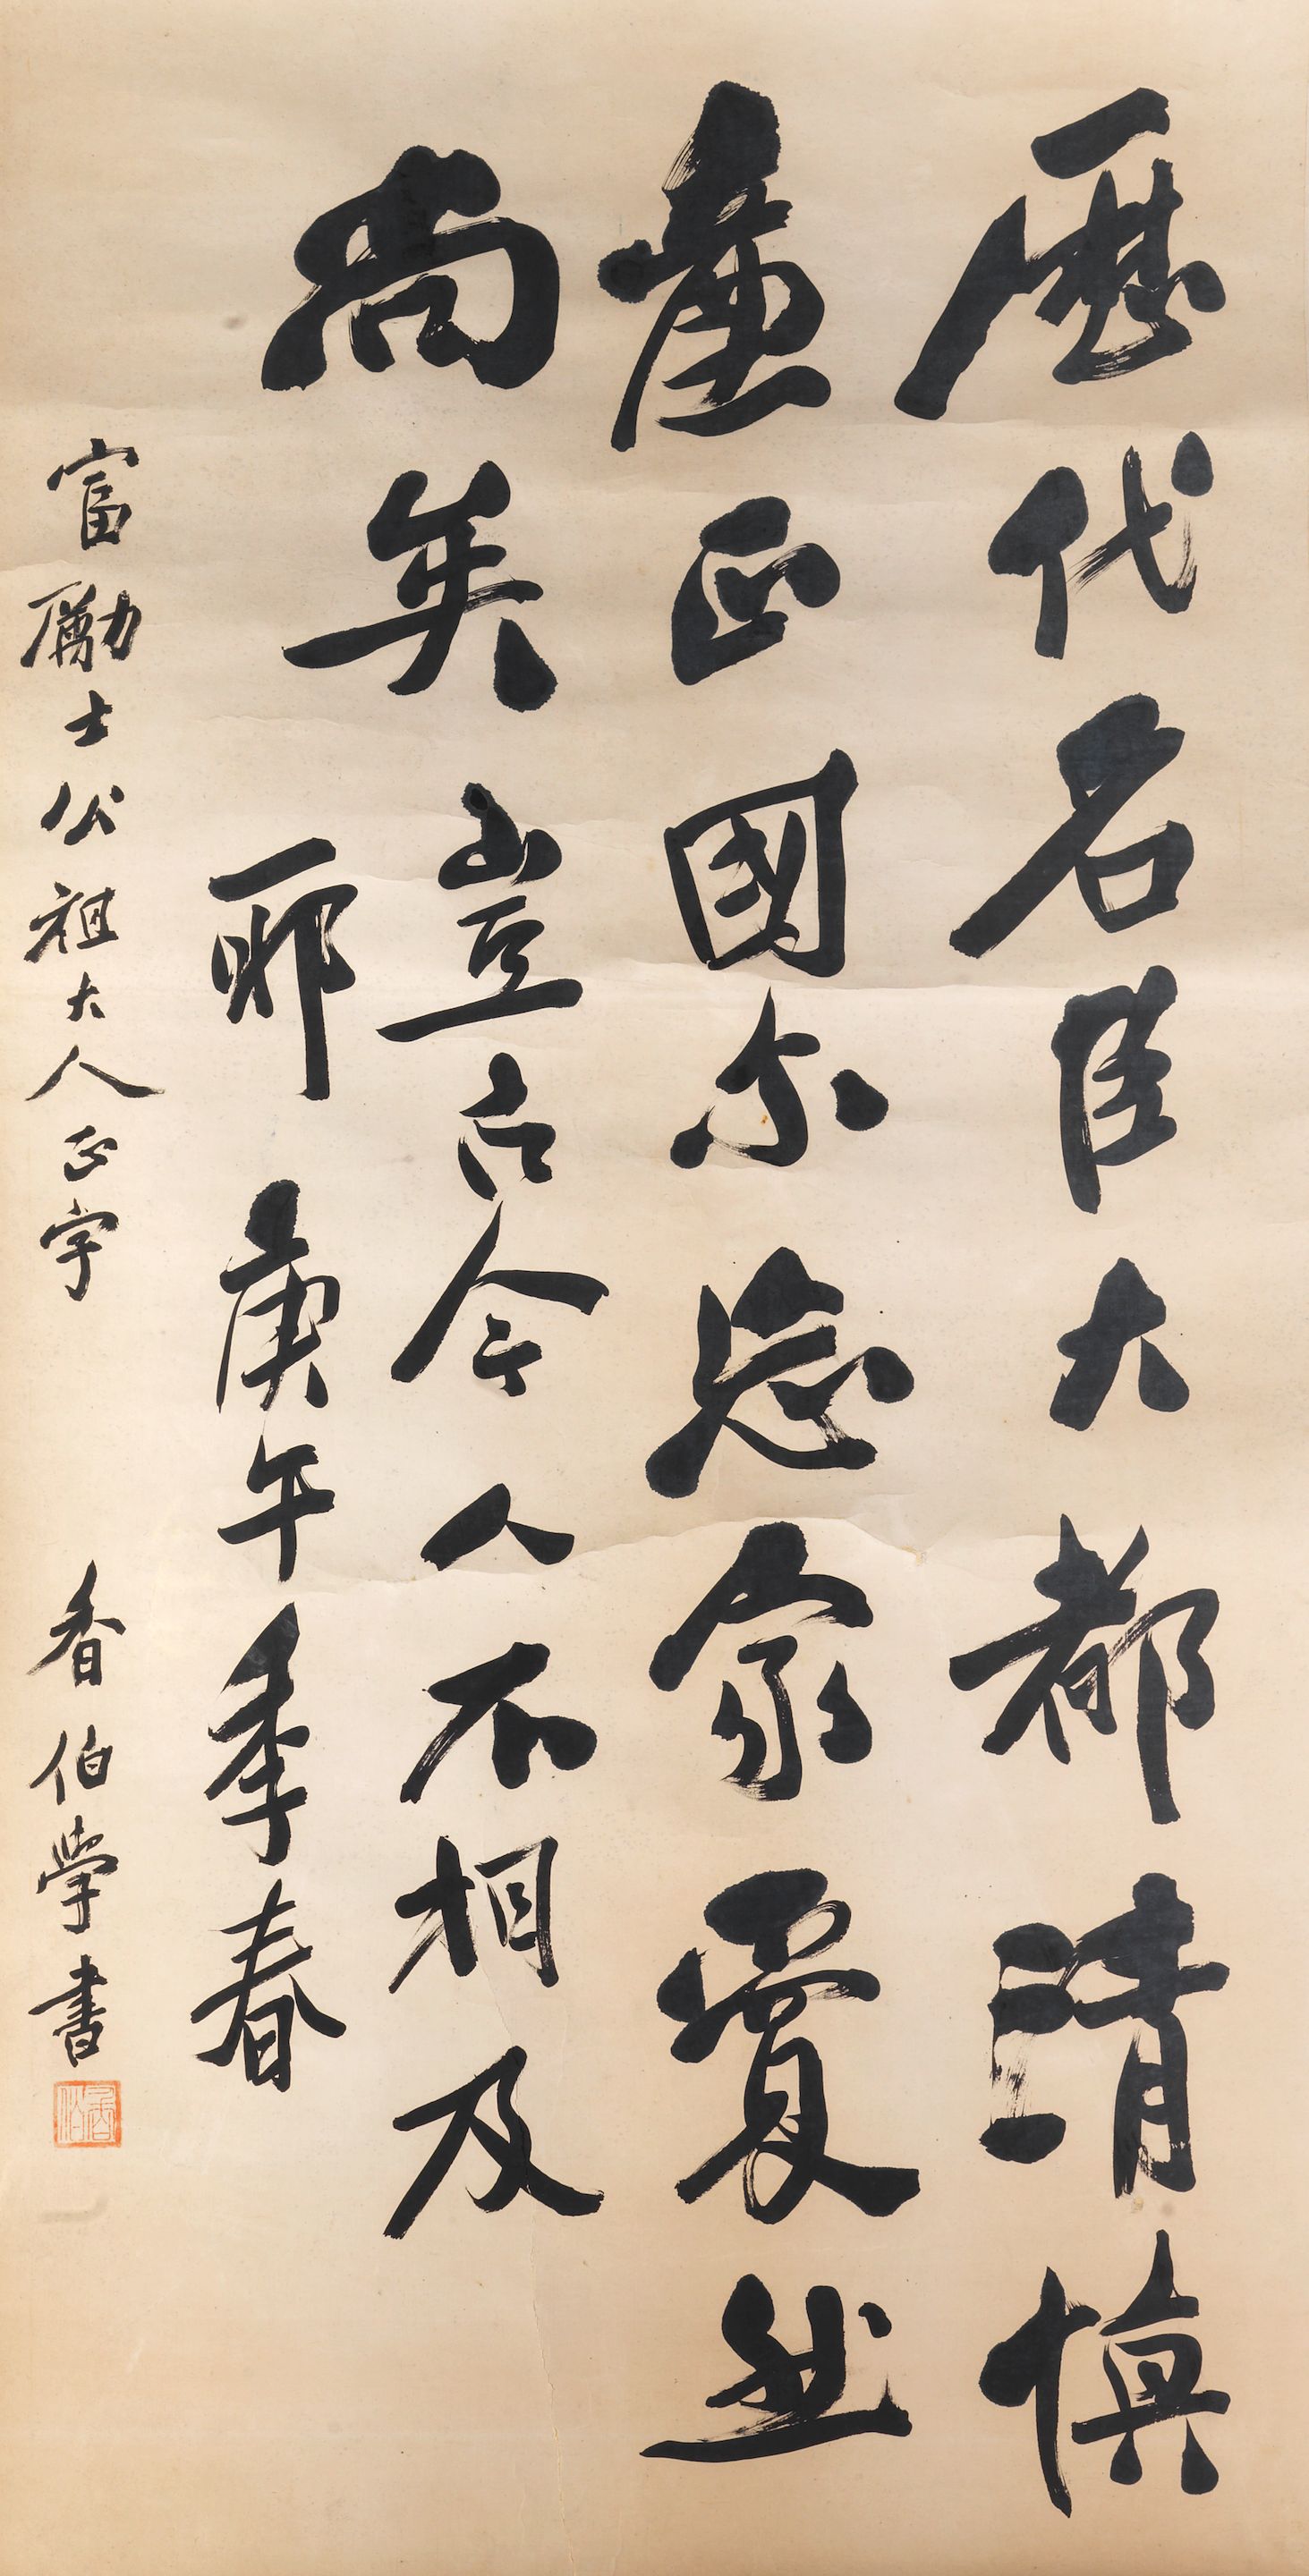 歷代名臣大都清慎
廉正國尔忘家夐然
尚矣豈古今人不相及
耶庚午季春
富勵士公祖大人正字
香伯學書
香伯